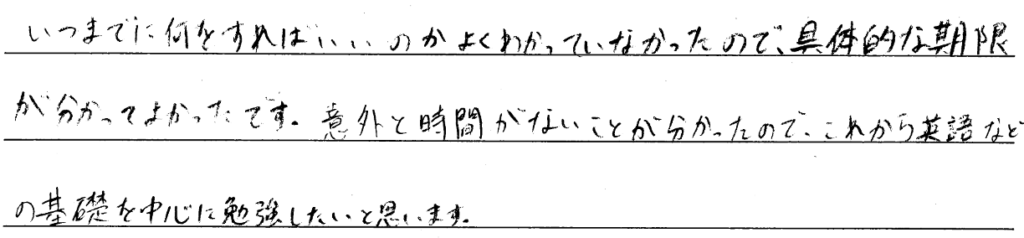 いつまでに何をすればいいのかよくわかっていなかったので、具体的な期限
が分かってよかったです。意外と時間がないことが分かったので、これから英語など
の基礎を中心に勉強したいと思います。